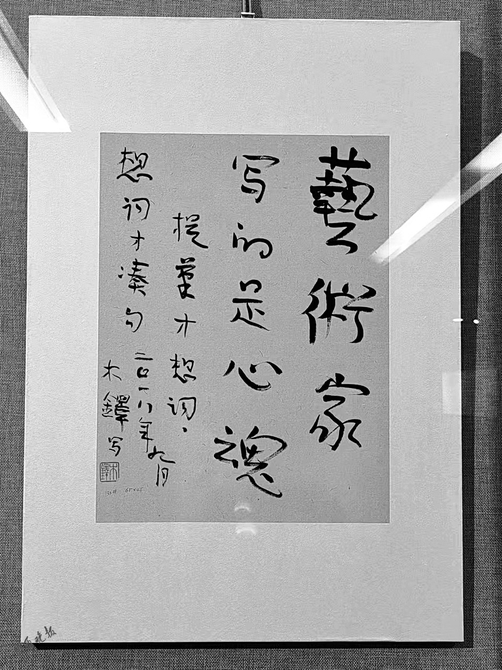 藝術家
写的是心魂
提笔才想词、
想词才凑句
二〇一八年九月
木鐸写